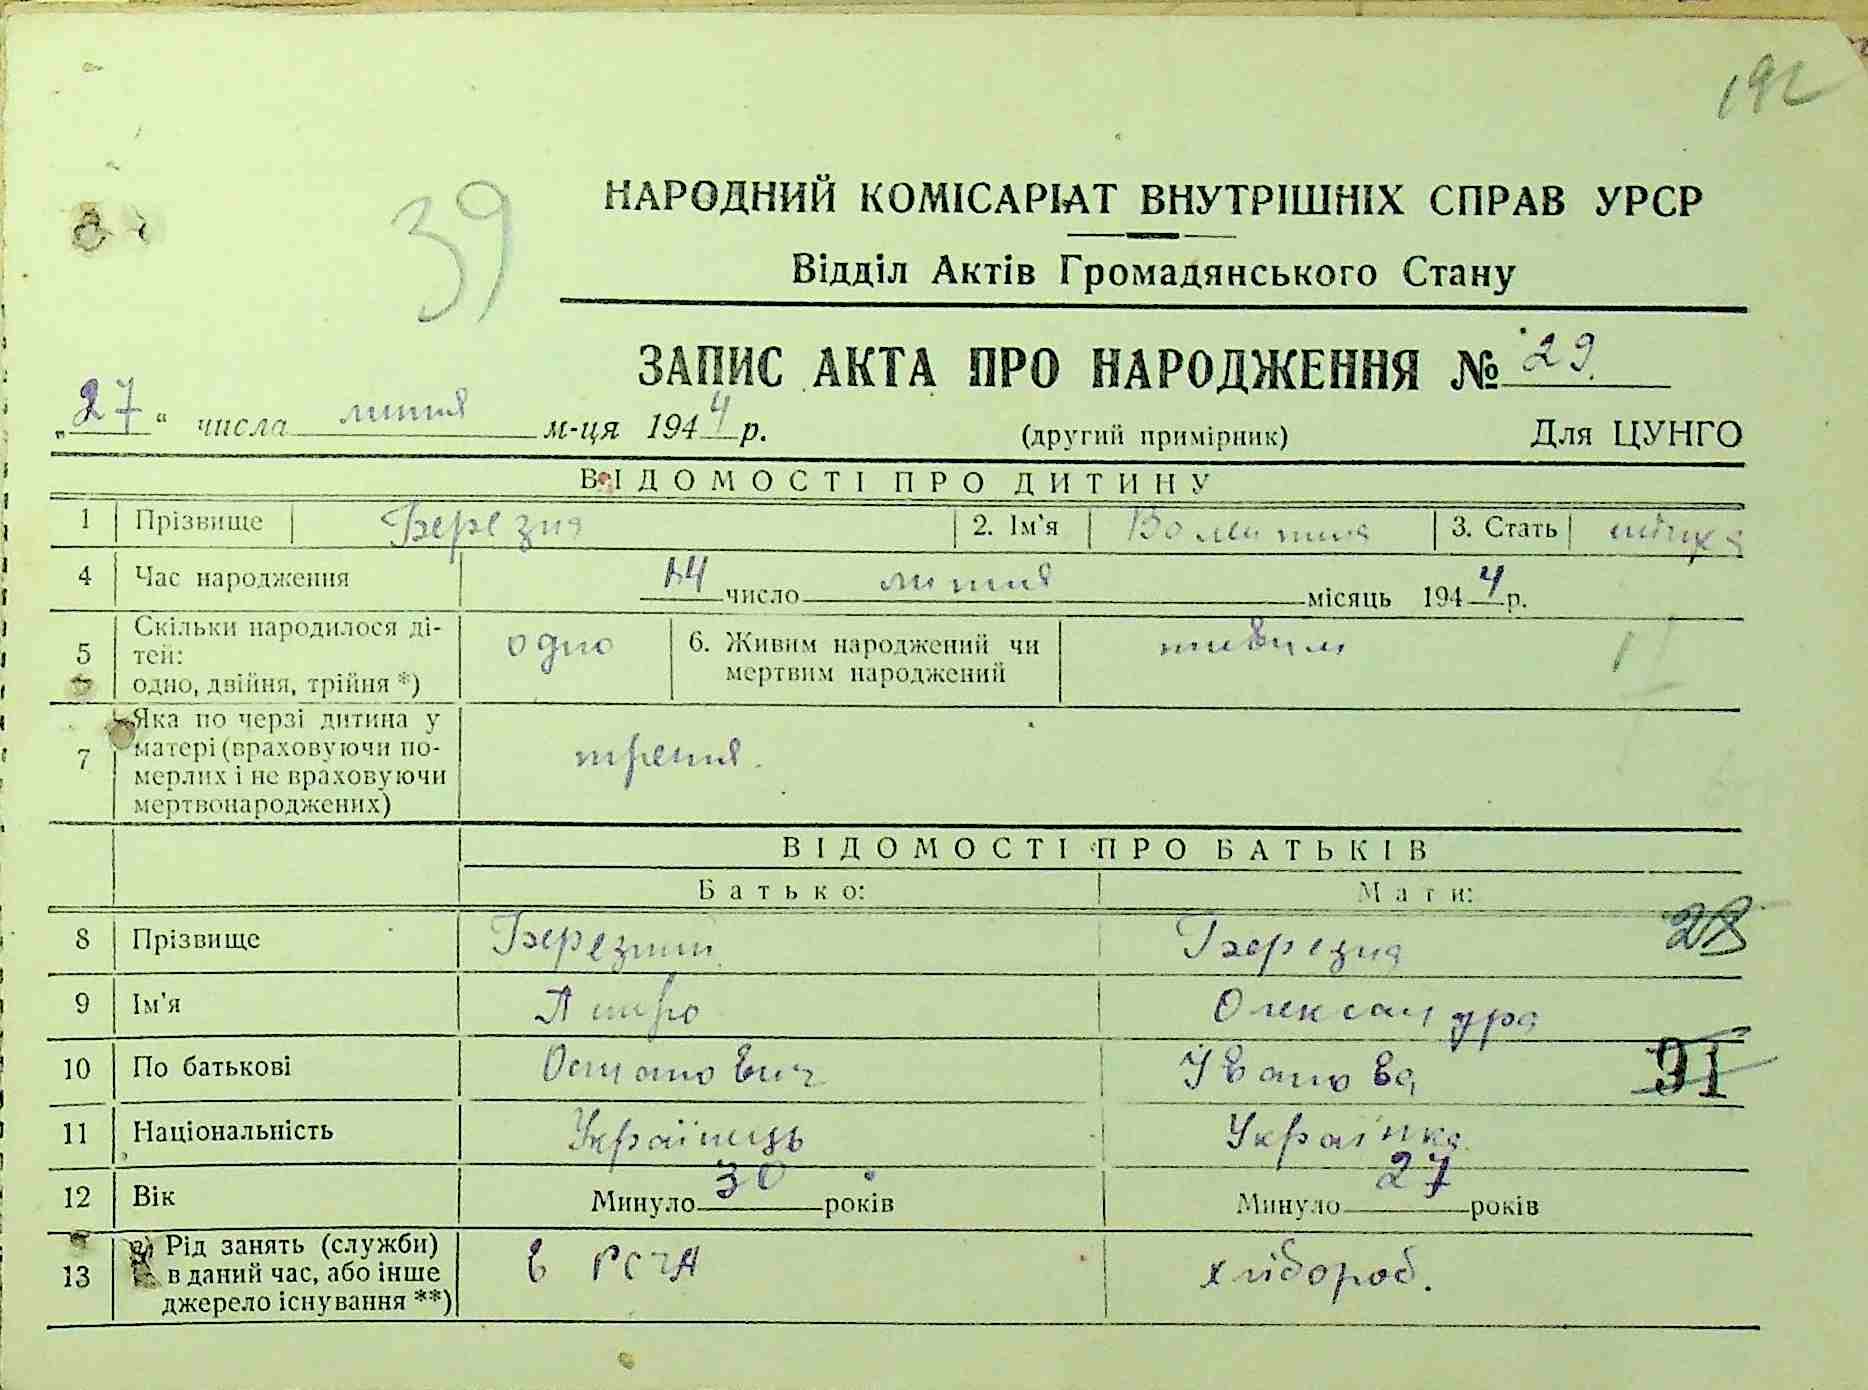 192
39
НАРОДНИЙ КОМІСАРІАТ ВНУТРІШНІХ СПРАВ УРСР
Відділ Актів Громадянського Стану
ЗАПИС АКТА ПРО НАРОДЖЕННЯ № 29.
„27“ числа м-ця 1944 р. (другий примірник) Для ЦУНГО
ВІДОМОСТІ ПРО ДИТИНУ
1 Прізвище Березня 2. Ім'я 3. Стать
4 Час народження число місяць 1944 р.
5 Скільки народилося ді-
тей:
одно, двійня, трійня *) одно 6. Живим народжений чи
мертвим народжений живим
7 Яка по черзі дитина у
матері (враховуючи по-
мерлих і не враховуючи
мертвонароджених) третя.
ВІДОМОСТІ ПРО БАТЬКІВ
Батько: Мати:
8 Прізвище Березний Березня 28
9 Ім'я Олександра
10 По батькові Остапович Івановна 91
11 Національність Українець Українка
12 Вік Минуло 30 років Минуло 27 років
13 а) Рід занять (служби)
в даний час, або інше
джерело існування **) в РСЧА хлібороб.